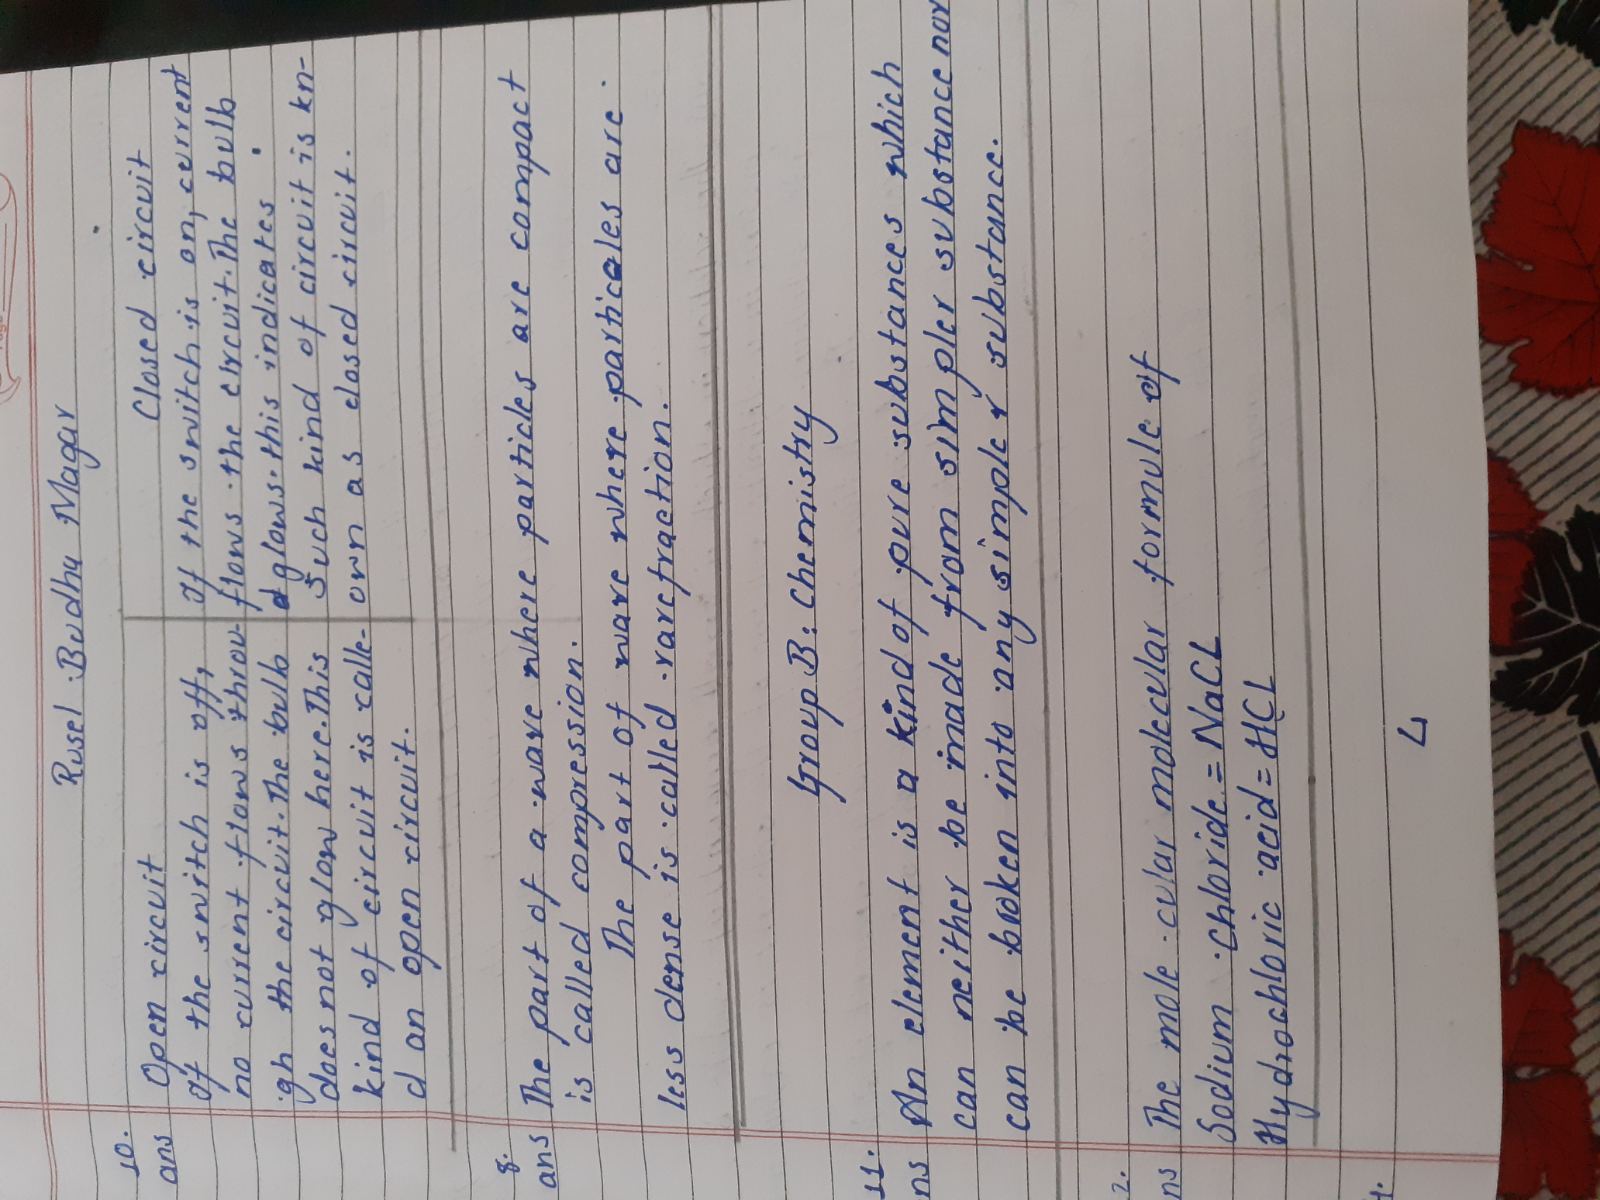 Rusel Budhu Magar
10.
ans Open circuit
If the switch is off,
no current flows throu-
gh the circuit. the bulb
does not glow here. This
kind of circuit is calle-
d an open circuit.
Closed circuit
If the switch is on, current
flows the circuit. The bulb
glows. this indicates
Such kind of circuit is kn-
own as closed circuit.
8.
ans The part of a wave where particles are compact
is called compression.
The part of wave where particales are
less dense is called rarefraction.
Group B: Chemistry
11.
ns An element is a kind of pure substances which
can neither be made from simpler substance nor
can be broken into any simple substance.
2.
ns The mole cular molecular formule of
Sodium chloride = NaCL
Hydrochloric acid = HCL
4.